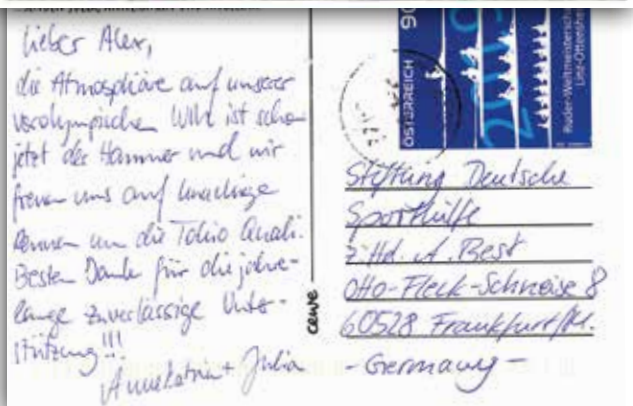 lieber Alex,
die Atmosphäre auf unserer
vorolympischen WM ist schon
jetzt der Hammer und wir
freuen uns auf knackige
Rennen um die Tokio Quali.
Besten Dank für die jahre-
lange zuverlässige Unter-
stützung!!!
Annekatrin + Julia
cewe
ÖSTERREICH 90
Ruder-Weltmeisterscha
Linz-Ottenshei
Stiftung Deutsche
Sporthilfe
z. Hd. A. Best
Otto-Fleck-Schneise 8
60528 Frankfurt/M.
- Germany -